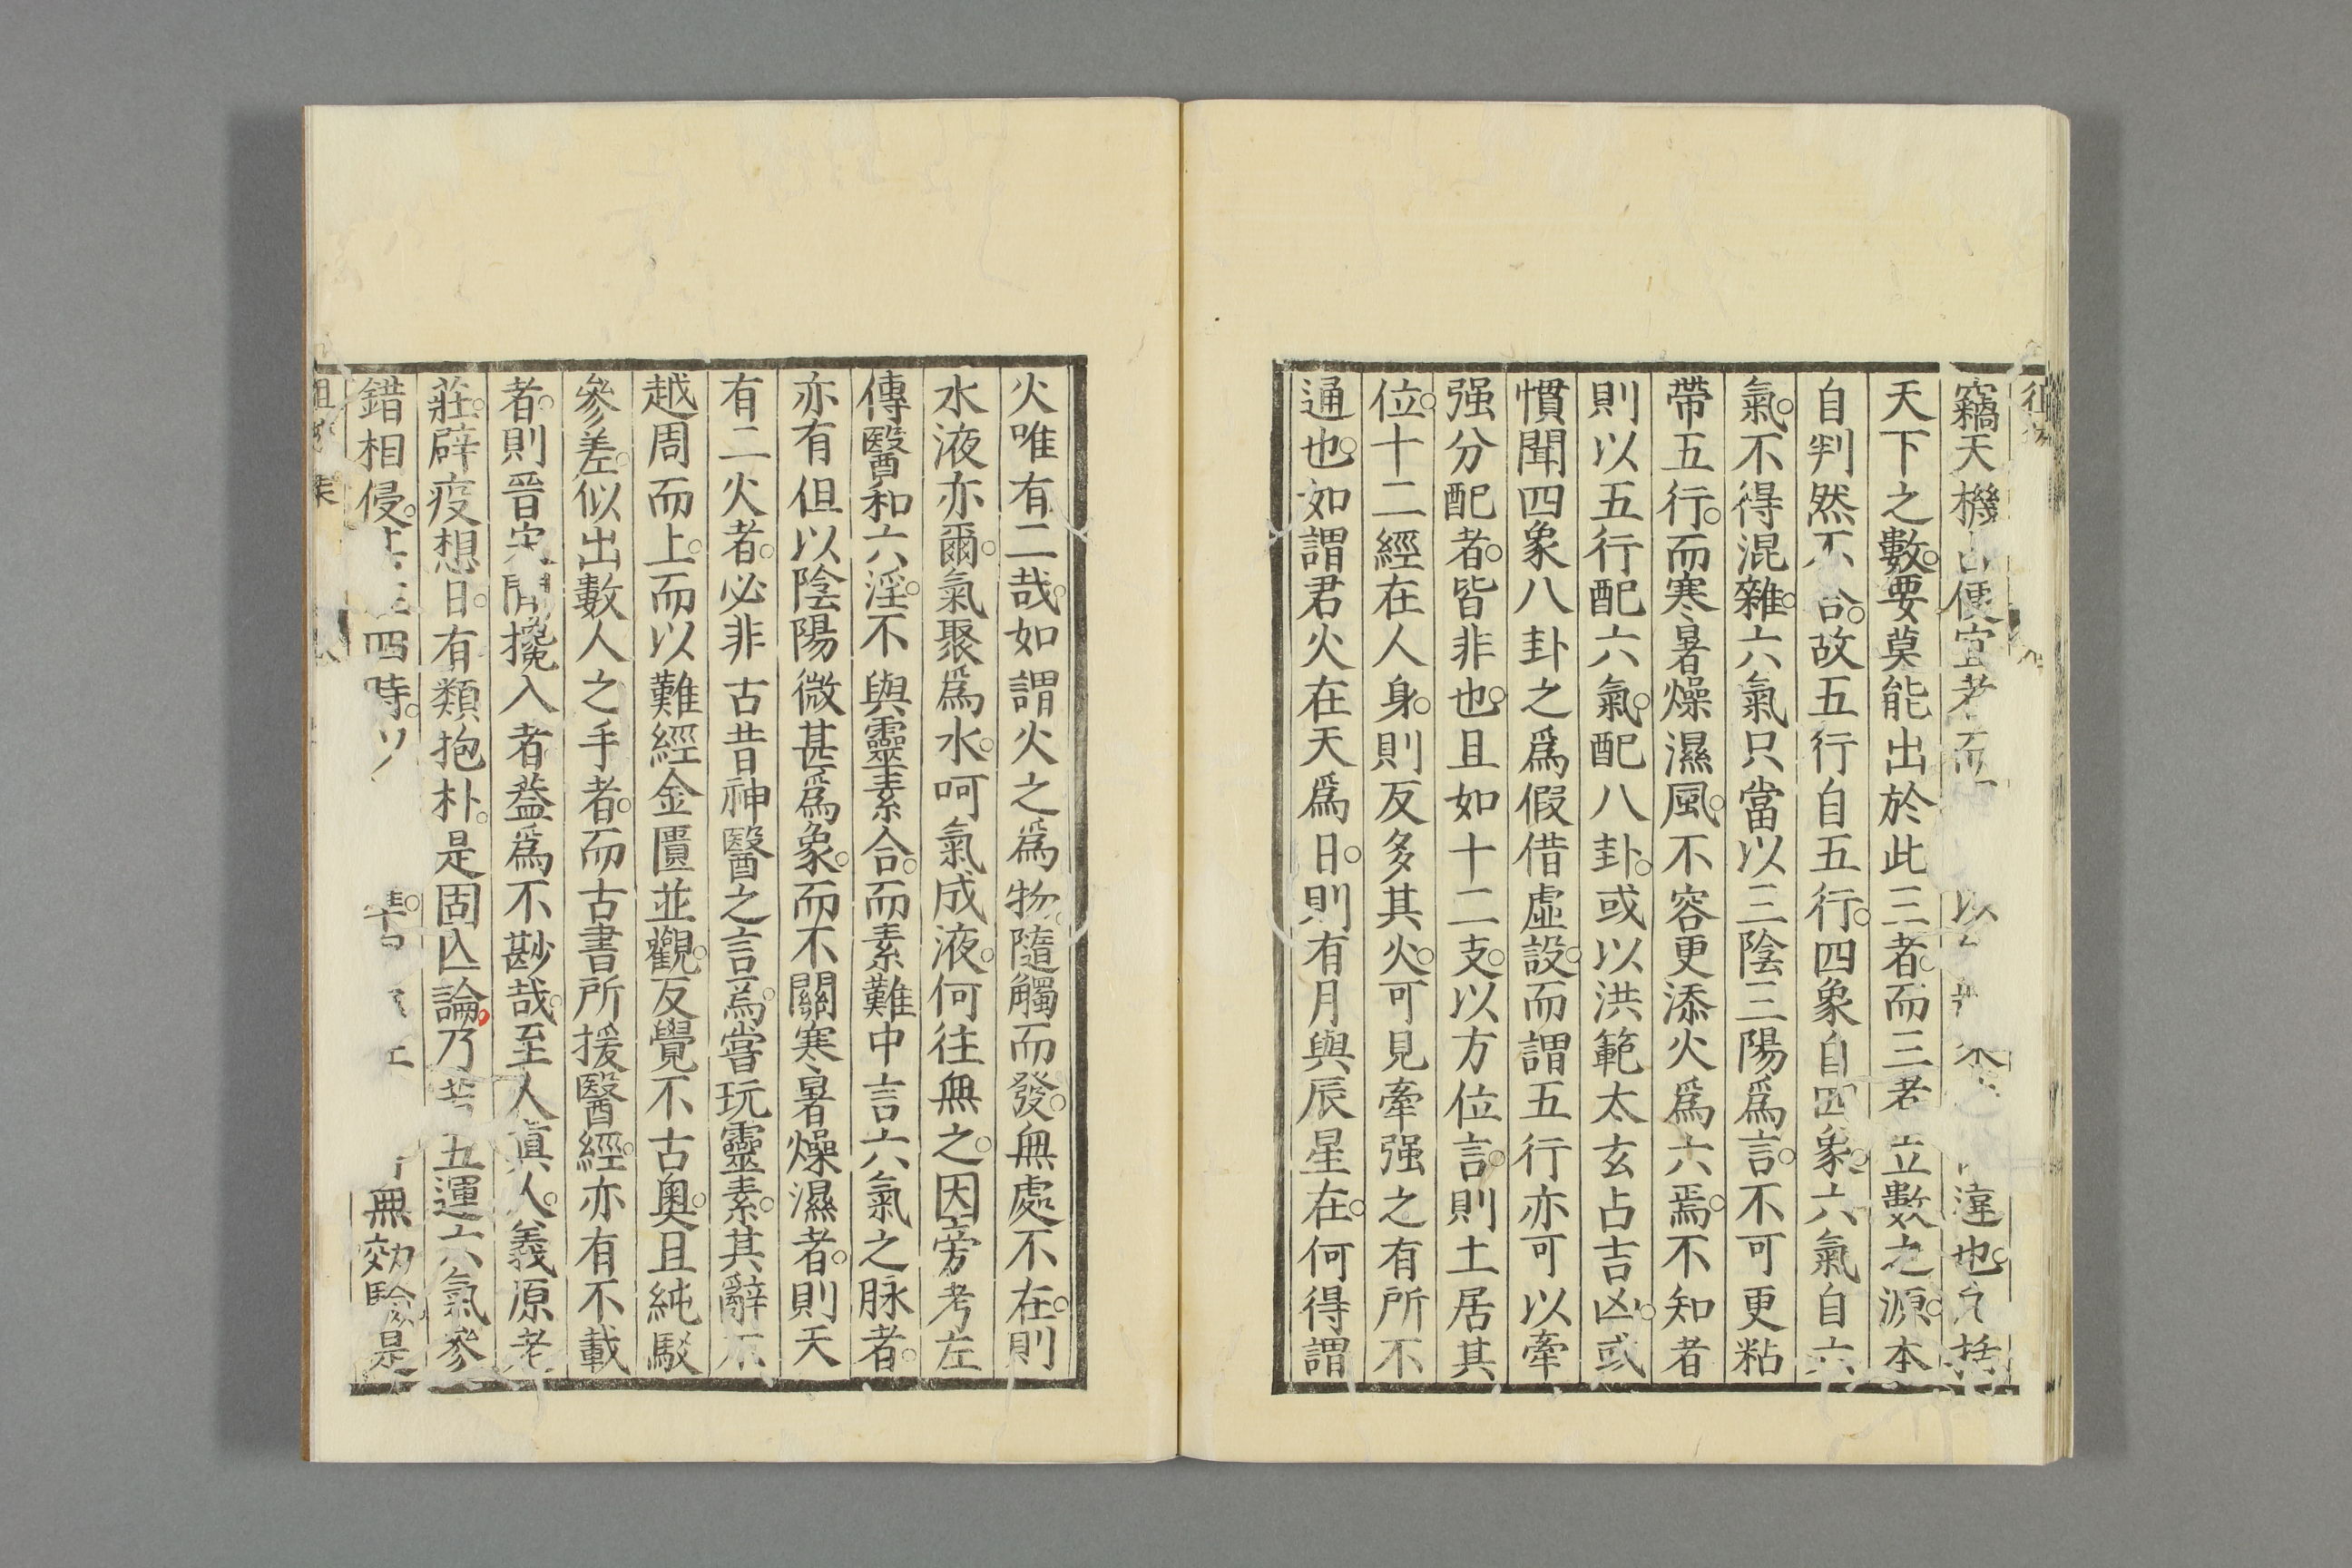 竊天機 便宜者而 以 違也 括
天下之數。要莫能出於此三者。而三者立數之源。本
自判然不合。故五行自五行。四象自四象。六氣自六
氣。不得混雜。六氣只當以三陰三陽爲言。不可更粘
帶五行。而寒暑燥濕風。不容更添火爲六焉。不知者
則以五行配六氣。配八卦。或以洪範太玄占吉凶。或
慣聞四象八卦之爲假借虛設。而謂五行亦可以牽
强分配者。皆非也。且如十二支。以方位言。則土居其
位。十二經在人身。則反多其火。可見牽强之有所不
通也。如謂君火在天爲日。則有月與辰星在。何得謂
火唯有二哉。如謂火之爲物。隨觸而發。無處不在。則
水液亦爾。氣聚爲水。呵氣成液。何往無之。因旁考左
傳醫和六淫。不與靈素合。而素難中言六氣之脉者。
亦有但以陰陽微甚爲象。而不關寒暑燥濕者。則天
有二火者。必非古昔神醫之言焉。嘗玩靈素。其辭不
越周而上。而以難經金匱並觀。反覺不古奧。且純駁
參差。似出數人之手者。而古書所援醫經。亦有不載
者。則晉宋間攙入者。葢爲不尠哉。至人眞人。義原老
莊。辟疫想日。有類抱朴。是固亾論。乃若五運六氣。參
錯相侵。 四時。以 無效驗。是